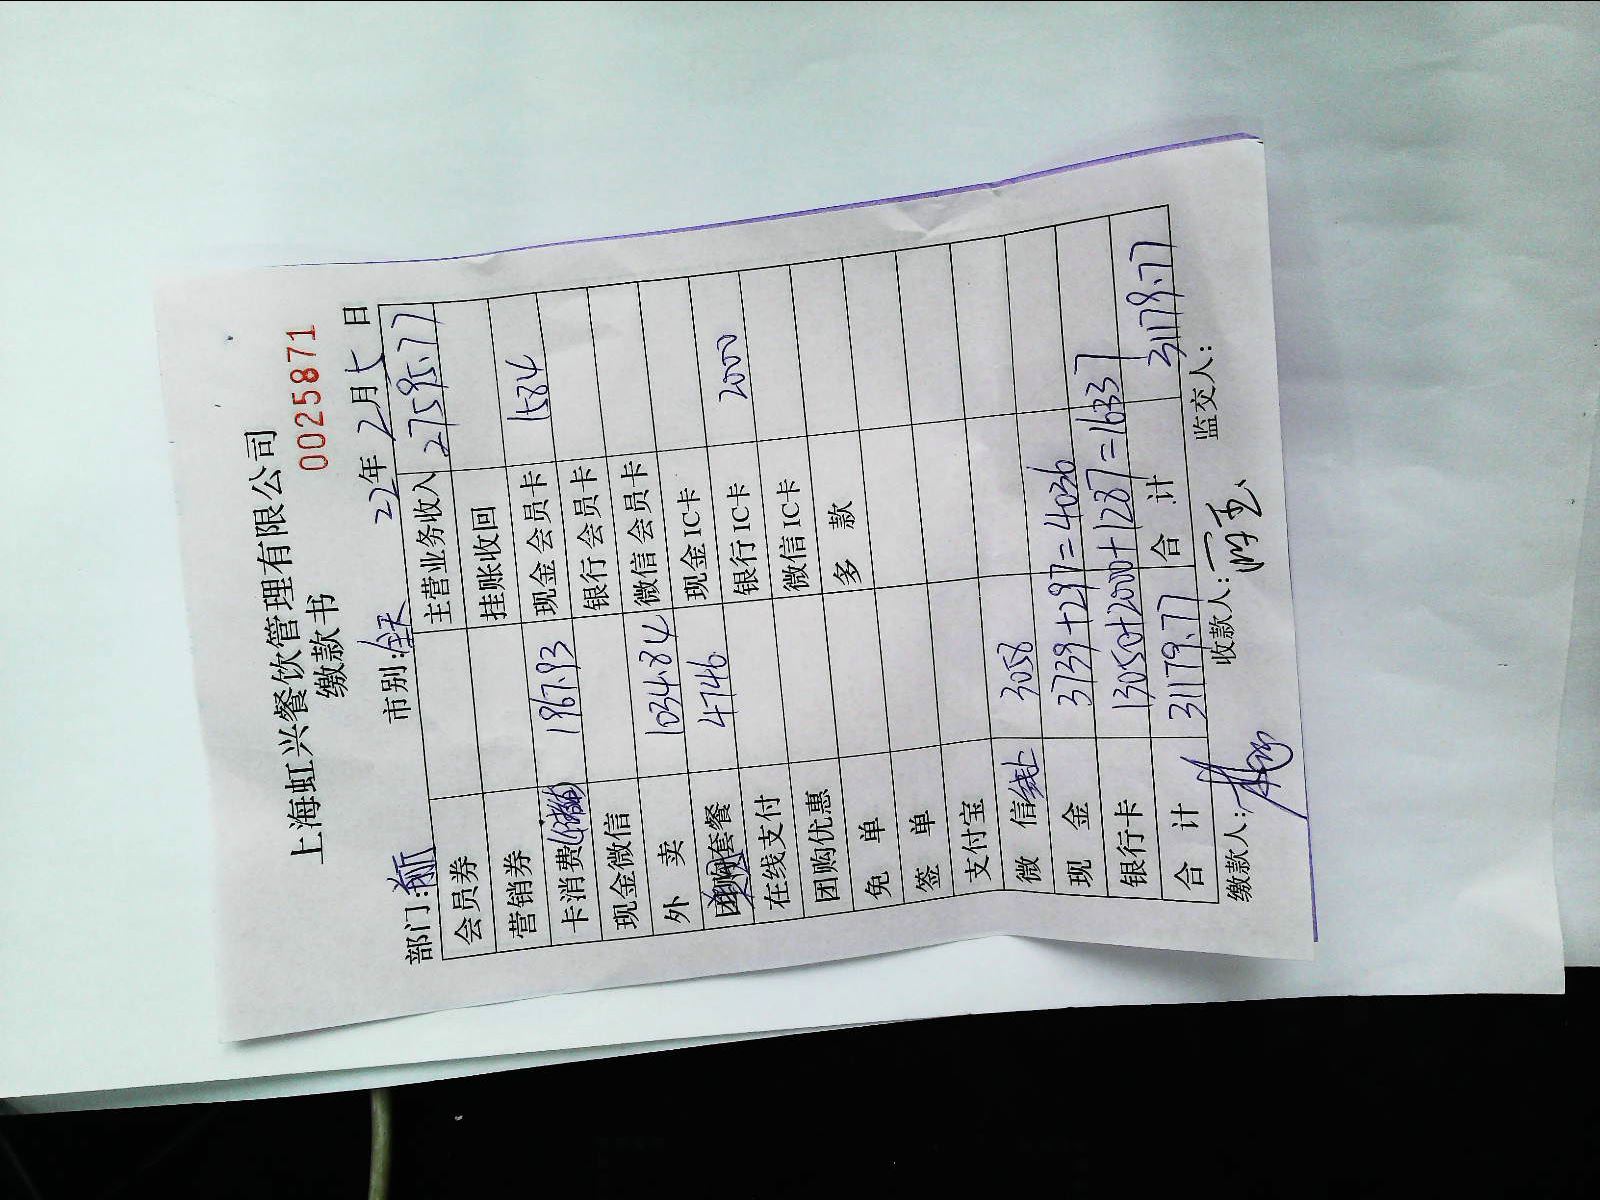 上海虹兴餐饮管理有限公司
缴款书 0025871
部门: 市别:全天 22年2月七日
会员券 主营业务收入 27595.77
营销券 挂账收回
卡消费 1967.93 现金会员卡 1584
现金微信 银行会员卡
外卖 1034.84 微信会员卡
套餐 4746 现金IC卡
在线支付 银行IC卡 2000
团购优惠 微信IC卡
免单 多款
签单
支付宝
微信 3058
现金 3739+297=4036
银行卡 13050+2000+1287=16337
合计 31179.77 合计 31179.77
缴款人: 收款人: 监交人: